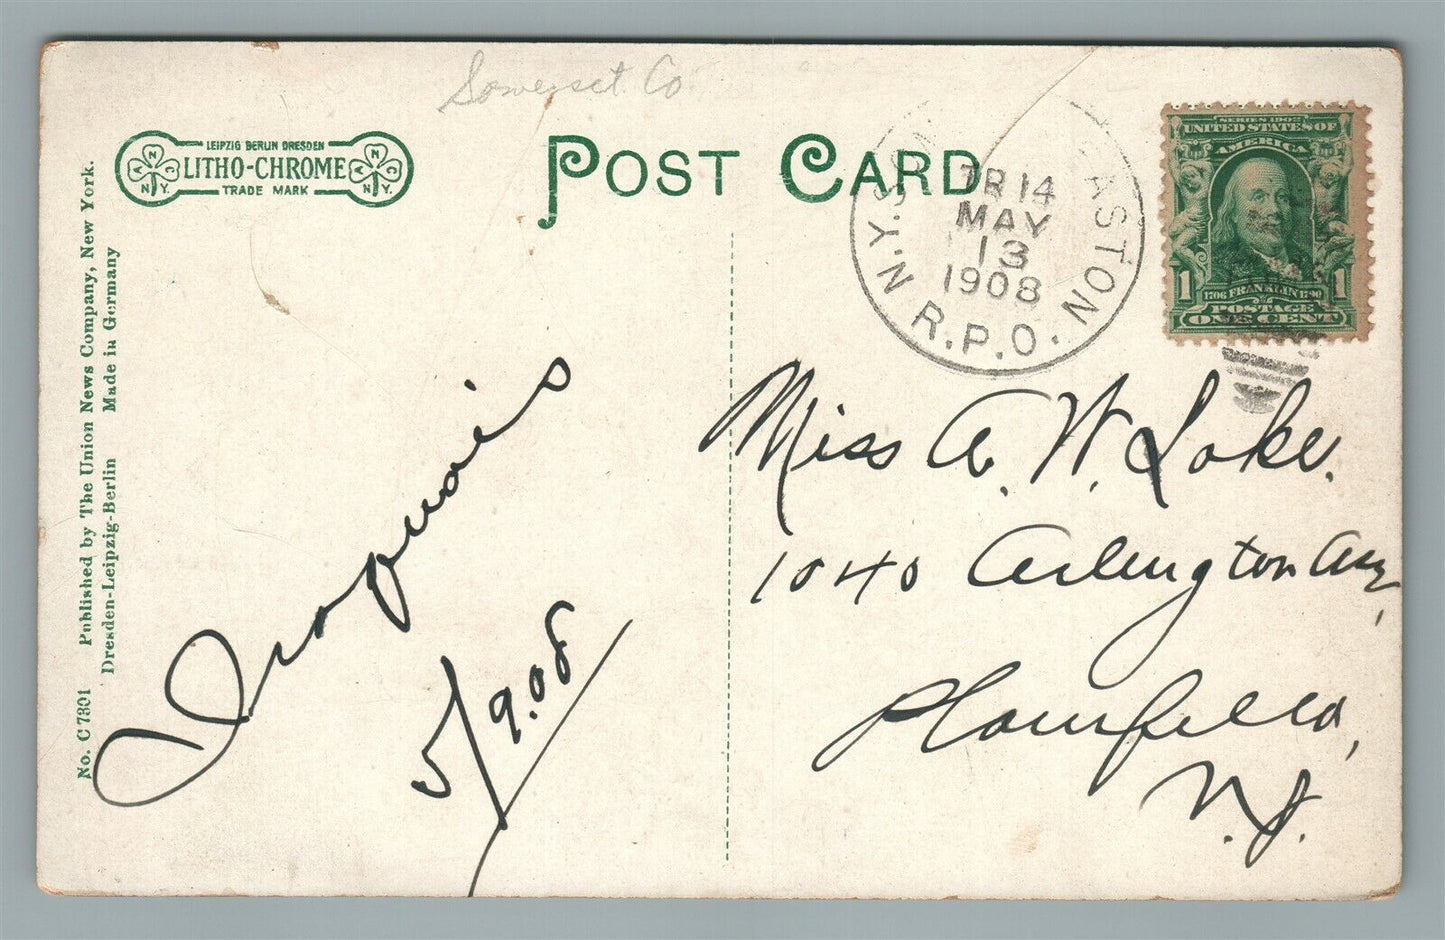 Somerset Co
LEIPZIG BERLIN DRESDEN
LITHO-CHROME
TRADE MARK
N
A N
N Y.
N
A C
N Y.
POST CARD
N.Y. SO ASTON
TR 14
MAY
13
1908
R.P.O.
SERIES 1902
UNITED STATES OF
AMERICA
1 1
1706 FRANKLIN 1790
POSTAGE
ONE CENT
No. C 7301 Published by The Union News Company, New York.
Dresden-Leipzig-Berlin Made in Germany
Iroquois
5/9.08
Miss A. W. Loke.
1040 Arlington Ave,
Plainfield,
N.J.